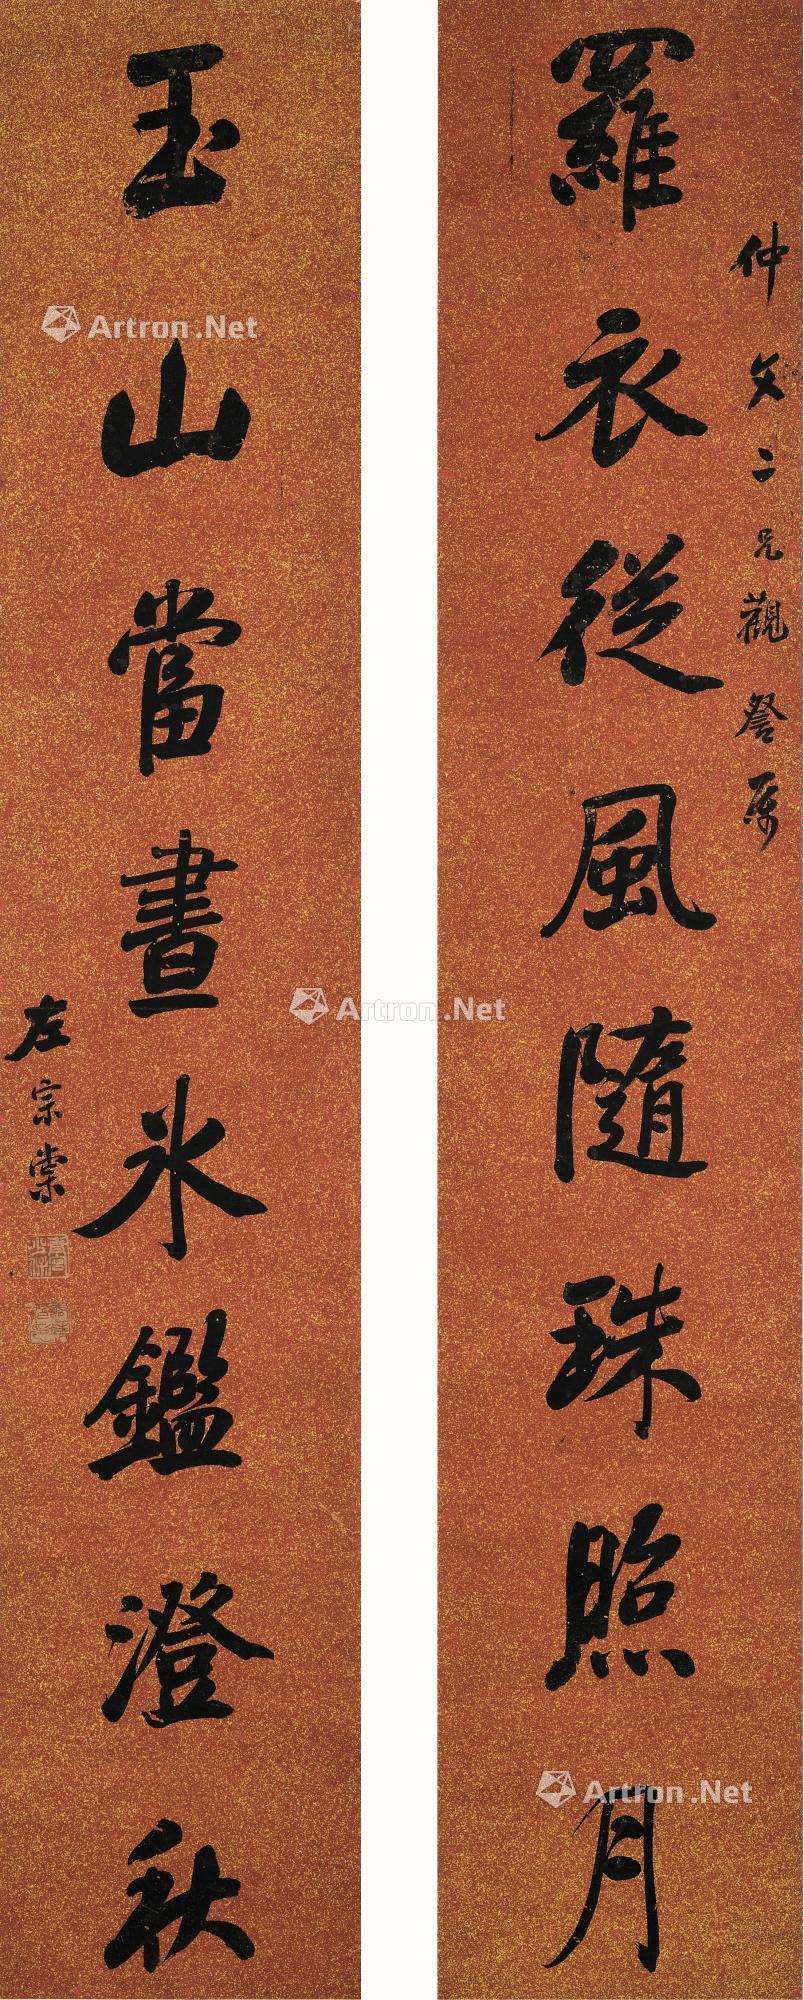 羅衣從風隨珠照月
仲文二兄觀詧屬
玉山當晝冰鑑澄秋
左宗棠
Artron.Net
Artron.Net
Artron.Net